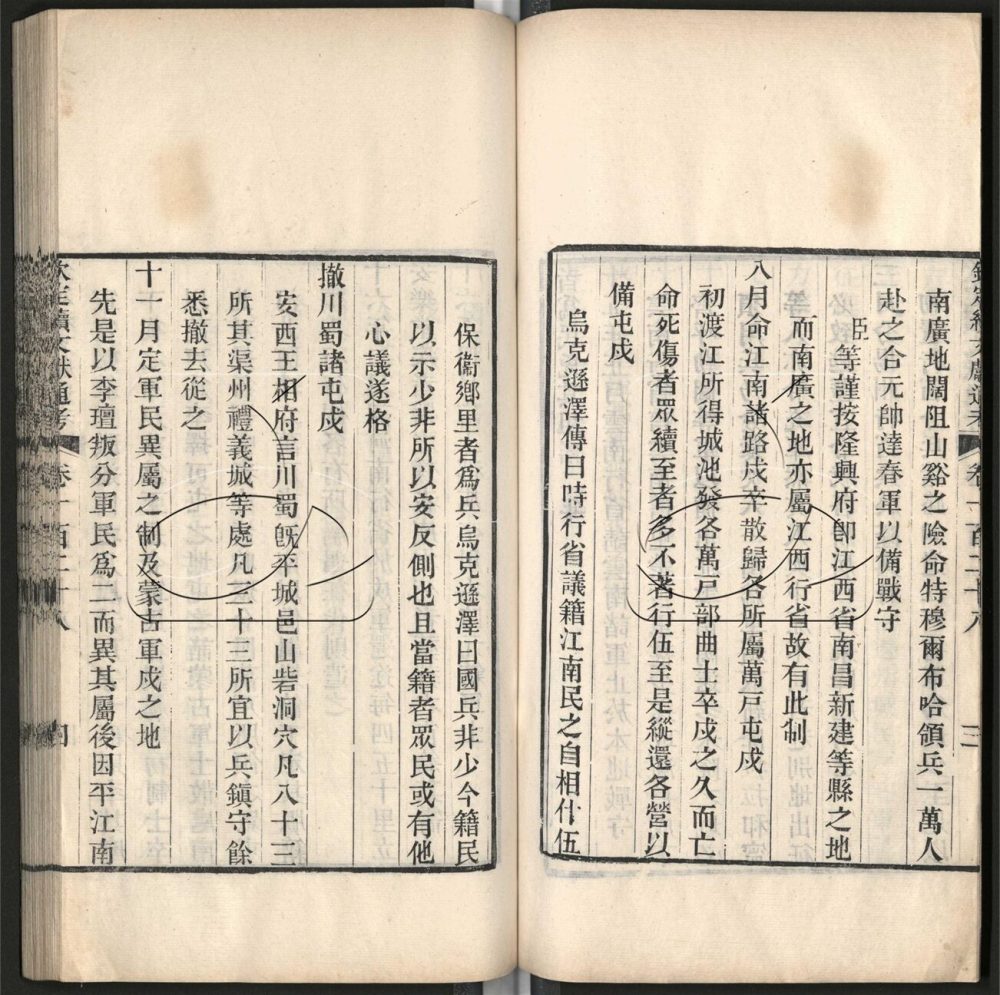 南廣地闊阻山谿之險命特穆爾布哈領兵一萬人
赴之合元帥達春軍以備戰守
臣等謹按隆興府卽江西省南昌新建等縣之地
而南廣之地亦屬江西行省故有此制
八月命江南諸路戍卒散歸各所屬萬戸屯戍
初渡江所得城池發各萬戸部曲士卒戍之久而亡
命死傷者眾續至者多不著行伍至是縱還各營以
備屯戍
烏克遜澤傳曰時行省議籍江南民之自相什伍
保衞鄉里者爲兵烏克遜澤曰國兵非少今籍民
以示少非所以安反側也且當籍者眾民或有他
心議遂格
撤川蜀諸屯戍
安西王相府言川蜀旣平城邑山砦洞穴凡八十三
所其渠州禮義城等處凡三十三所宜以兵鎭守餘
悉撤去從之
十一月定軍民異屬之制及蒙古軍戍之地
先是以李璮叛分軍民爲二而異其屬後因平江南
欽定續文獻通考 卷一百二十八